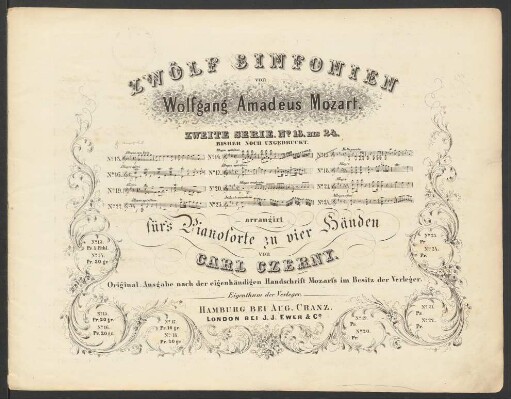 ZWÖLF SINFONIEN
von
Wolfgang Amadeus Mozart.
ZWEITE SERIE, No 13. BIS 24.
BISHER NOCH UNGEDRUCKT.
No 13. No 14. No 15.
No 16. No 17. No 18.
No 19. No 20. No 21.
No 22. No 23. No 24.
arrangirt
für's Pianoforte zu vier Händen
von
CARL CZERNY.
Original-Ausgabe nach der eigenhändigen Handschrift Mozarts im Besitz der Verleger.
Eigenthum der Verleger.
HAMBURG BEI AUG. CRANZ.
LONDON BEI J. J. EWER & Co
No 13.
No 14.
Pr. 20 gr.
No 15.
Pr. 20 gr.
No 16.
Pr. 20 gr.
No 17.
Pr. 16 gr.
No 18.
Pr. 20 gr.
No 19.
Pr.
No 20.
Pr.
No 21.
Pr.
No 22.
Pr.
No 23.
Pr.
No 24.
Pr.